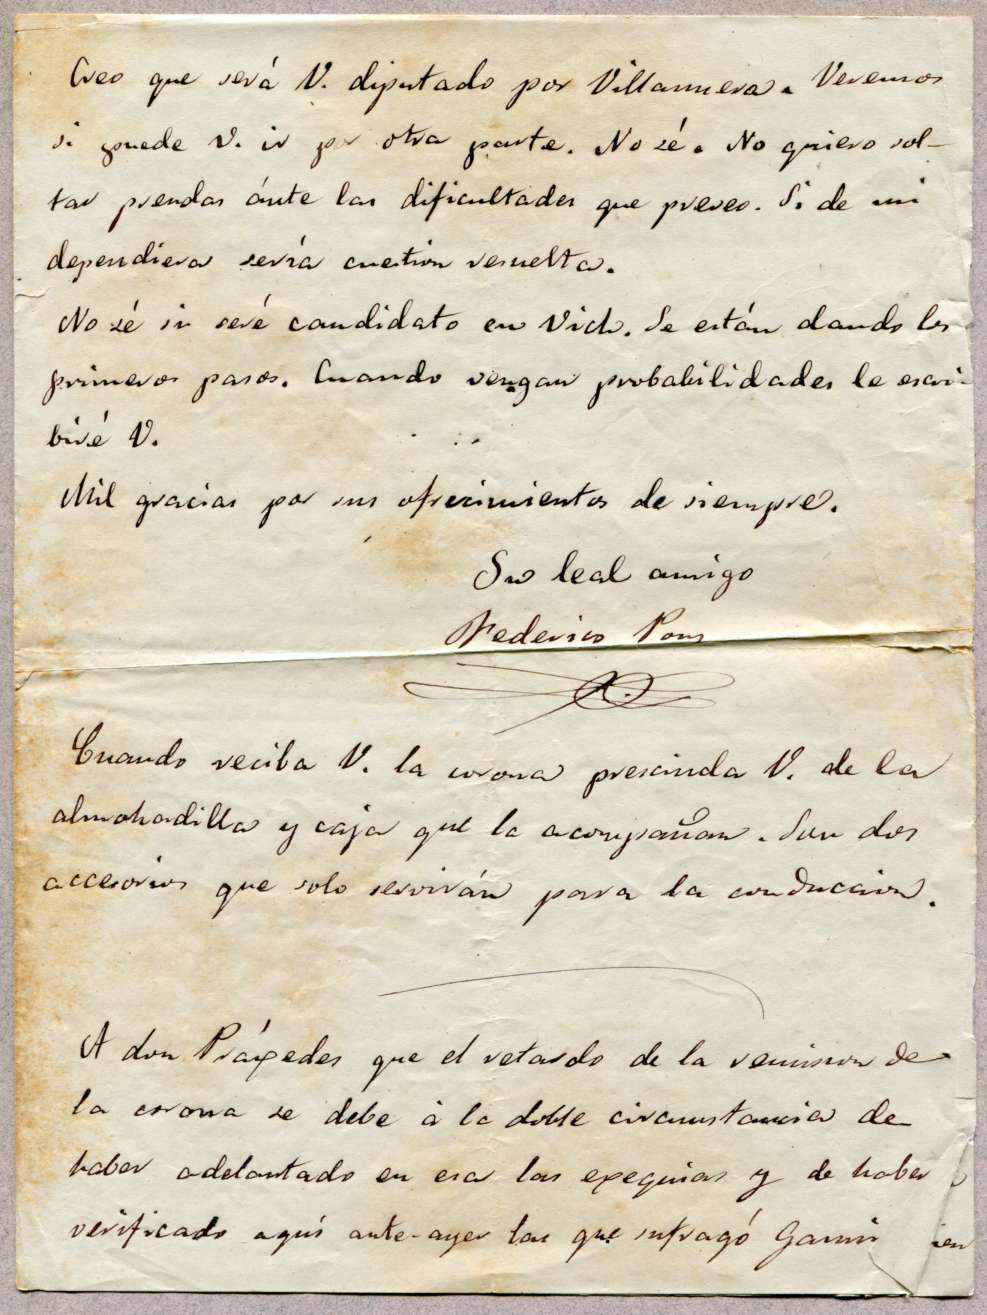 Creo que será V. diputado por Villanueva. Veremos
si puede V. ir por otra parte. No sé. No quiero sol-
tar prendas ánte las dificultades que preveo. Si de mi
dependiera sería cuestion resuelta.
No sé si seré candidato en Vich. Se están dando los
primeros pasos. Cuando vengan probabilidades le escri-
biré V.
Mil gracias por sus ofrecimientos de siempre.
Su leal amigo
Federico Pons
Cuando reciba V. la corona prescinda V. de la
almohadilla y caja que la acompañan. Son dos
accesorios que solo servirán para la conduccion.
A don Práxedes que el retardo de la remision de
la corona se debe à la doble circunstancia de
haber adelantado en esa las exequias y de haber
verificado aquí ante-ayer las que sufragó